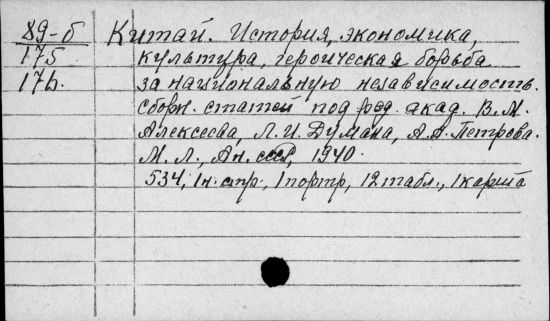 89-б Китай. История, экономика,
175 культура, героическая борьба
176. за национальную независимость.
сборн. статей под ред. акад. В.М.
Алексеева, Л.И. Думана, А.А. Петрова.
М. Л., Ан. ссср, 1940.
534, 1 н. стр., 1 портр, 12 табл., 1 карта